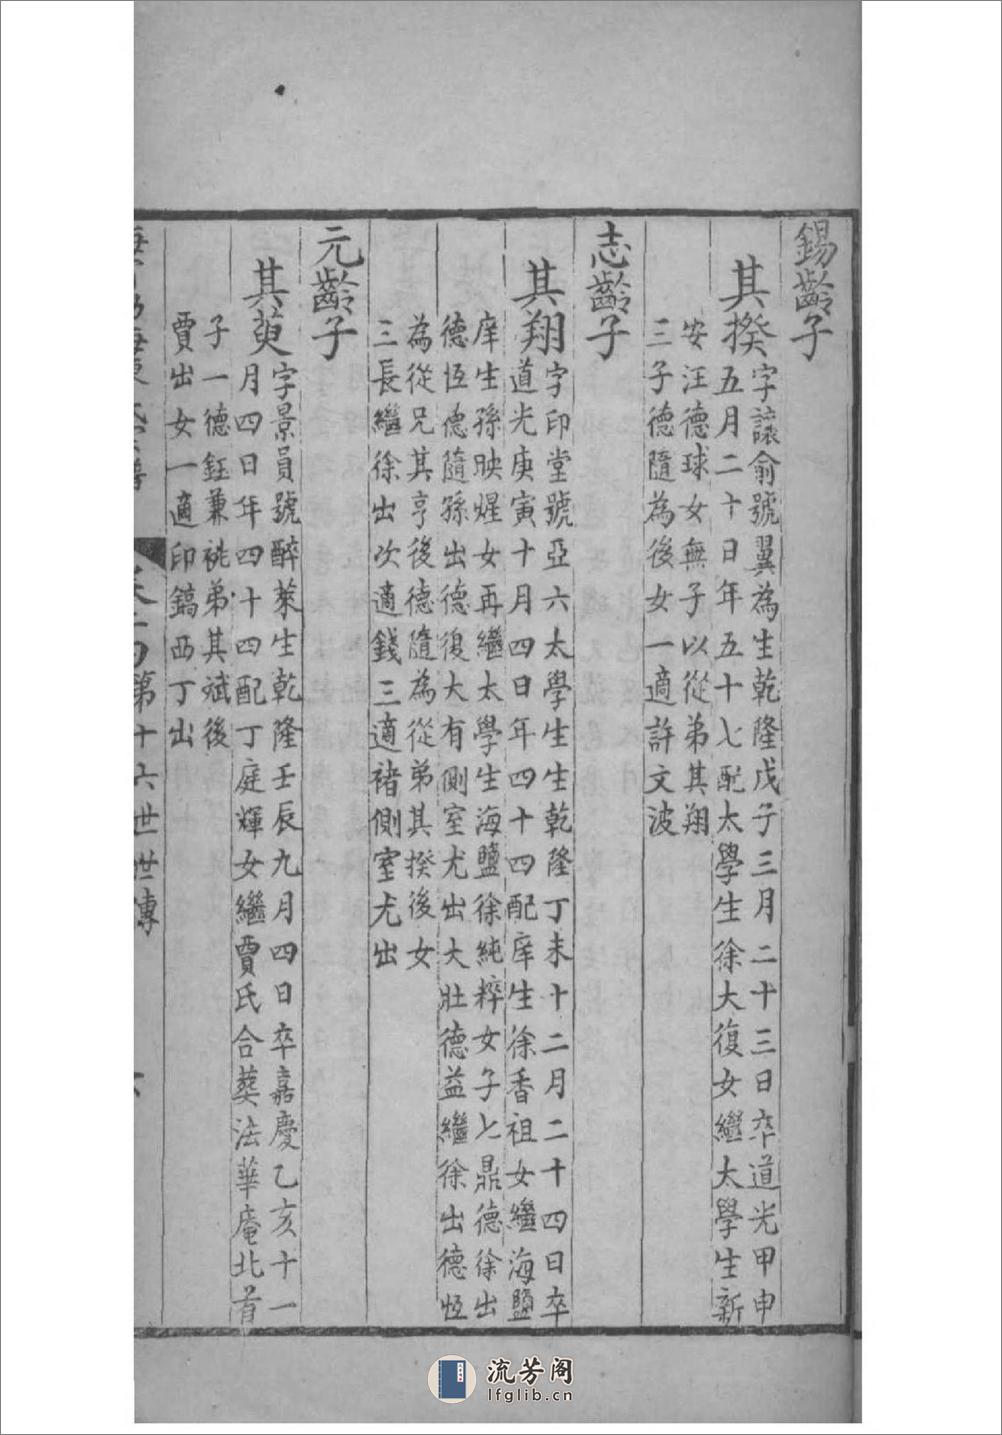 錫齡子
其揆
字讓俞號翼為生乾隆戊子三月二十三日卒道光甲申
五月二十日年五十七配太學生徐大復女繼太學生新
安汪德球女無子以從弟其翔
三子德隨為後女一適許文波
志齡子
其翔
字印堂號亞六太學生生乾隆丁未十二月二十四日卒
道光庚寅十月四日年四十四配庠生徐香祖女繼海鹽
庠生孫映煋女再繼太學生海鹽徐純粹女子七鼎德徐出
德恆德隨孫出德復大有側室尤出大壯德益繼徐出德恆
為從兄其亨後德隨為從弟其揆後女
三長繼徐出次適錢三適褚側室尤出
元齡子
其萸
字景員號醉萊生乾隆壬辰九月四日卒嘉慶乙亥十一
月四日年四十四配丁庭輝女繼賈氏合葬法華庵北首
子一德鈺兼祧弟其斌後
賈出女一適印鎬西丁出
第十六世世傳
流芳阁
lfglib.cn